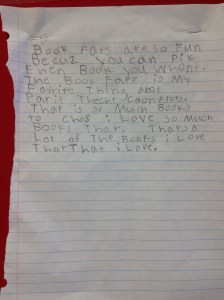 Book Fairs are so Fun
Becuz you can Pik
Even Book you Whant.
The Book Faire is My
Favrite Thing
Thar is so Much Books
to chos i Love so Much
Books Thar. Thars a
Lot of The Books i Love
Thar That i Love.